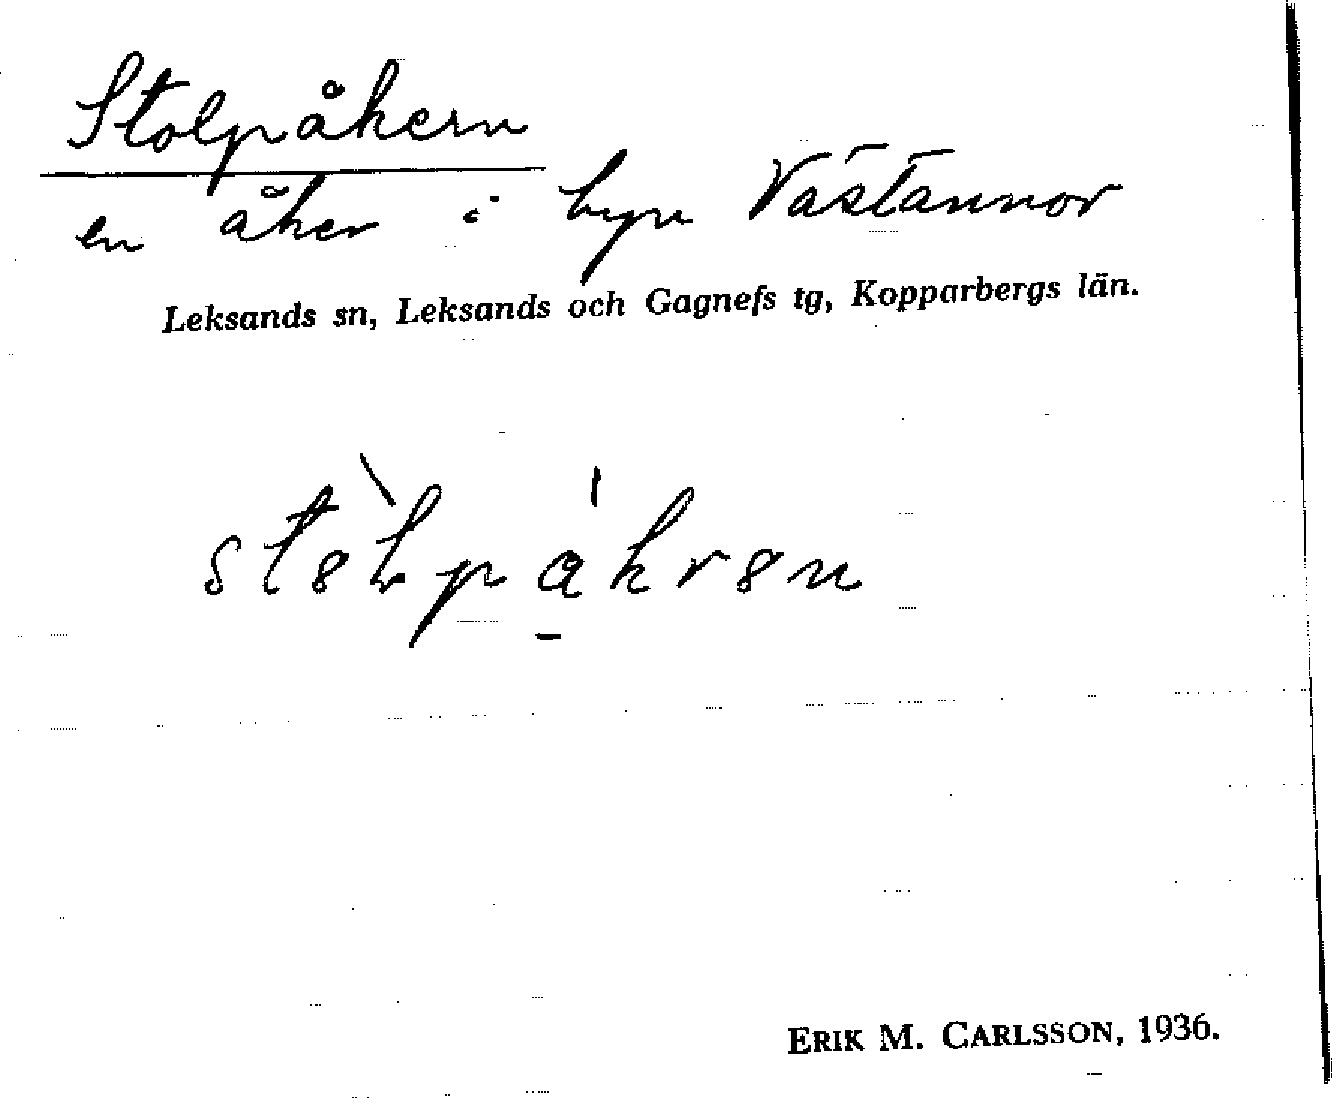 Stolpåkern
en åker i byn Västannor
Leksands sn, Leksands och Gagnefs tg, Kopparbergs län.
ERIK M. CARLSSON, 1936.